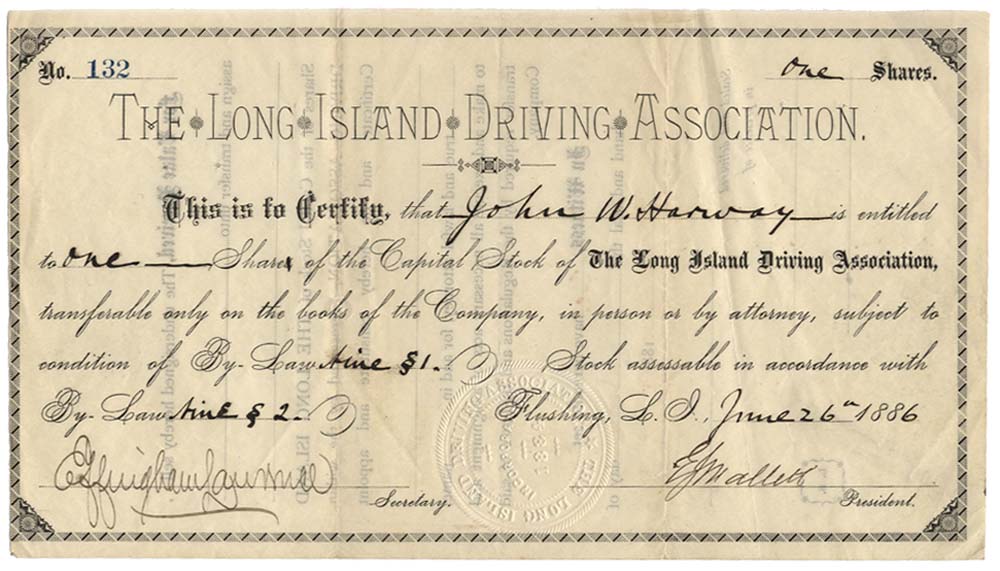 No. 132 one Shares.
THE LONG ISLAND DRIVING ASSOCIATION.
This is to Certify, that John W. Harway is entitled
to one Share of the Capital Stock of The Long Island Driving Association,
transferable only on the books of the Company, in person or by attorney, subject to
condition of By-Law Nine § 1. Stock assessable in accordance with
By-Law Nine § 2. Flushing, L. I., June 26th 1886
Effingham Lawrence Secretary. E J Mallett President.